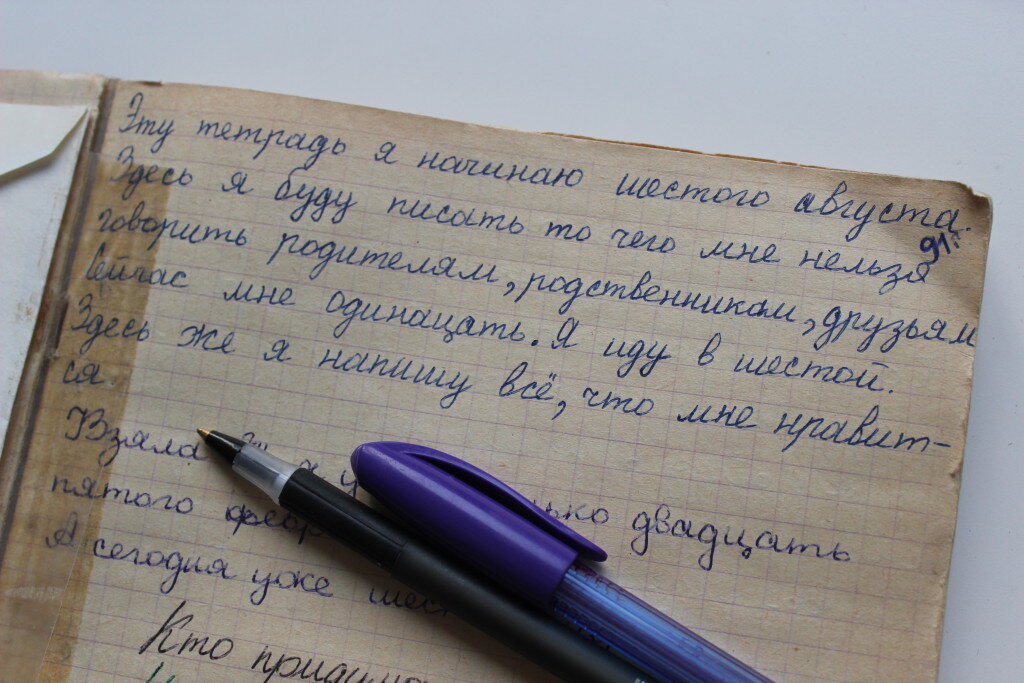 Эту тетрадь я начинаю шестого августа.
91г.
Здесь я буду писать то чего мне нельзя
говорить родителям, родственникам, друзьям
Сейчас мне одинацать. Я иду в шестой.
Здесь же я напишу всё, что мне нравит-
ся.
Взяла двадцать
пятого
А сегодня уже
Кто